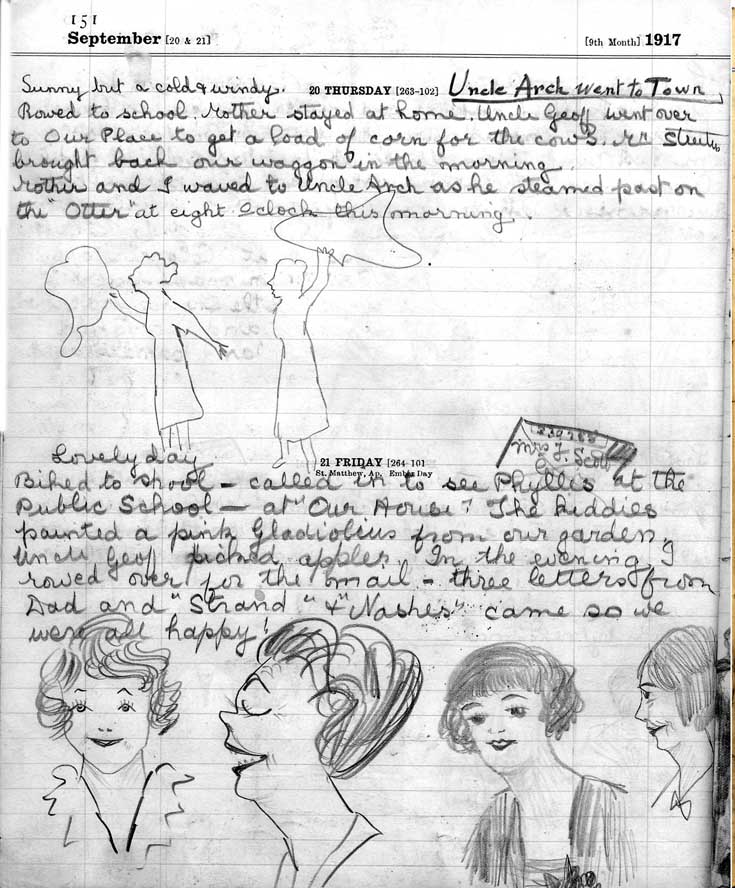 151
September [20 & 21] [9th Month] 1917
Sunny but a cold & windy. 20 THURSDAY [263-102] Uncle Arch went to Town
Rowed to school. Mother stayed at home. Uncle Geoff went over
to Our Place to get a load of corn for the cows. Mr
brought back our waggon in the morning
Mother and I waved to Uncle Arch as he steamed past on
the "Otter" at eight Oclock this morning.
Lovely day 21 FRIDAY [264-101]
St. Matthew, Ap. Ember Day
Mrs J.
G. Scott
Biked to shool – called in to see Phyllis at the
Public School – at "Our House". The kiddies
painted a pink Gladiolius from our garden,
Uncle Geoff picked apples. In the evening I
rowed over for the mail – three letters from
Dad and "Strand" & "Nashes" came so we
were all happy!